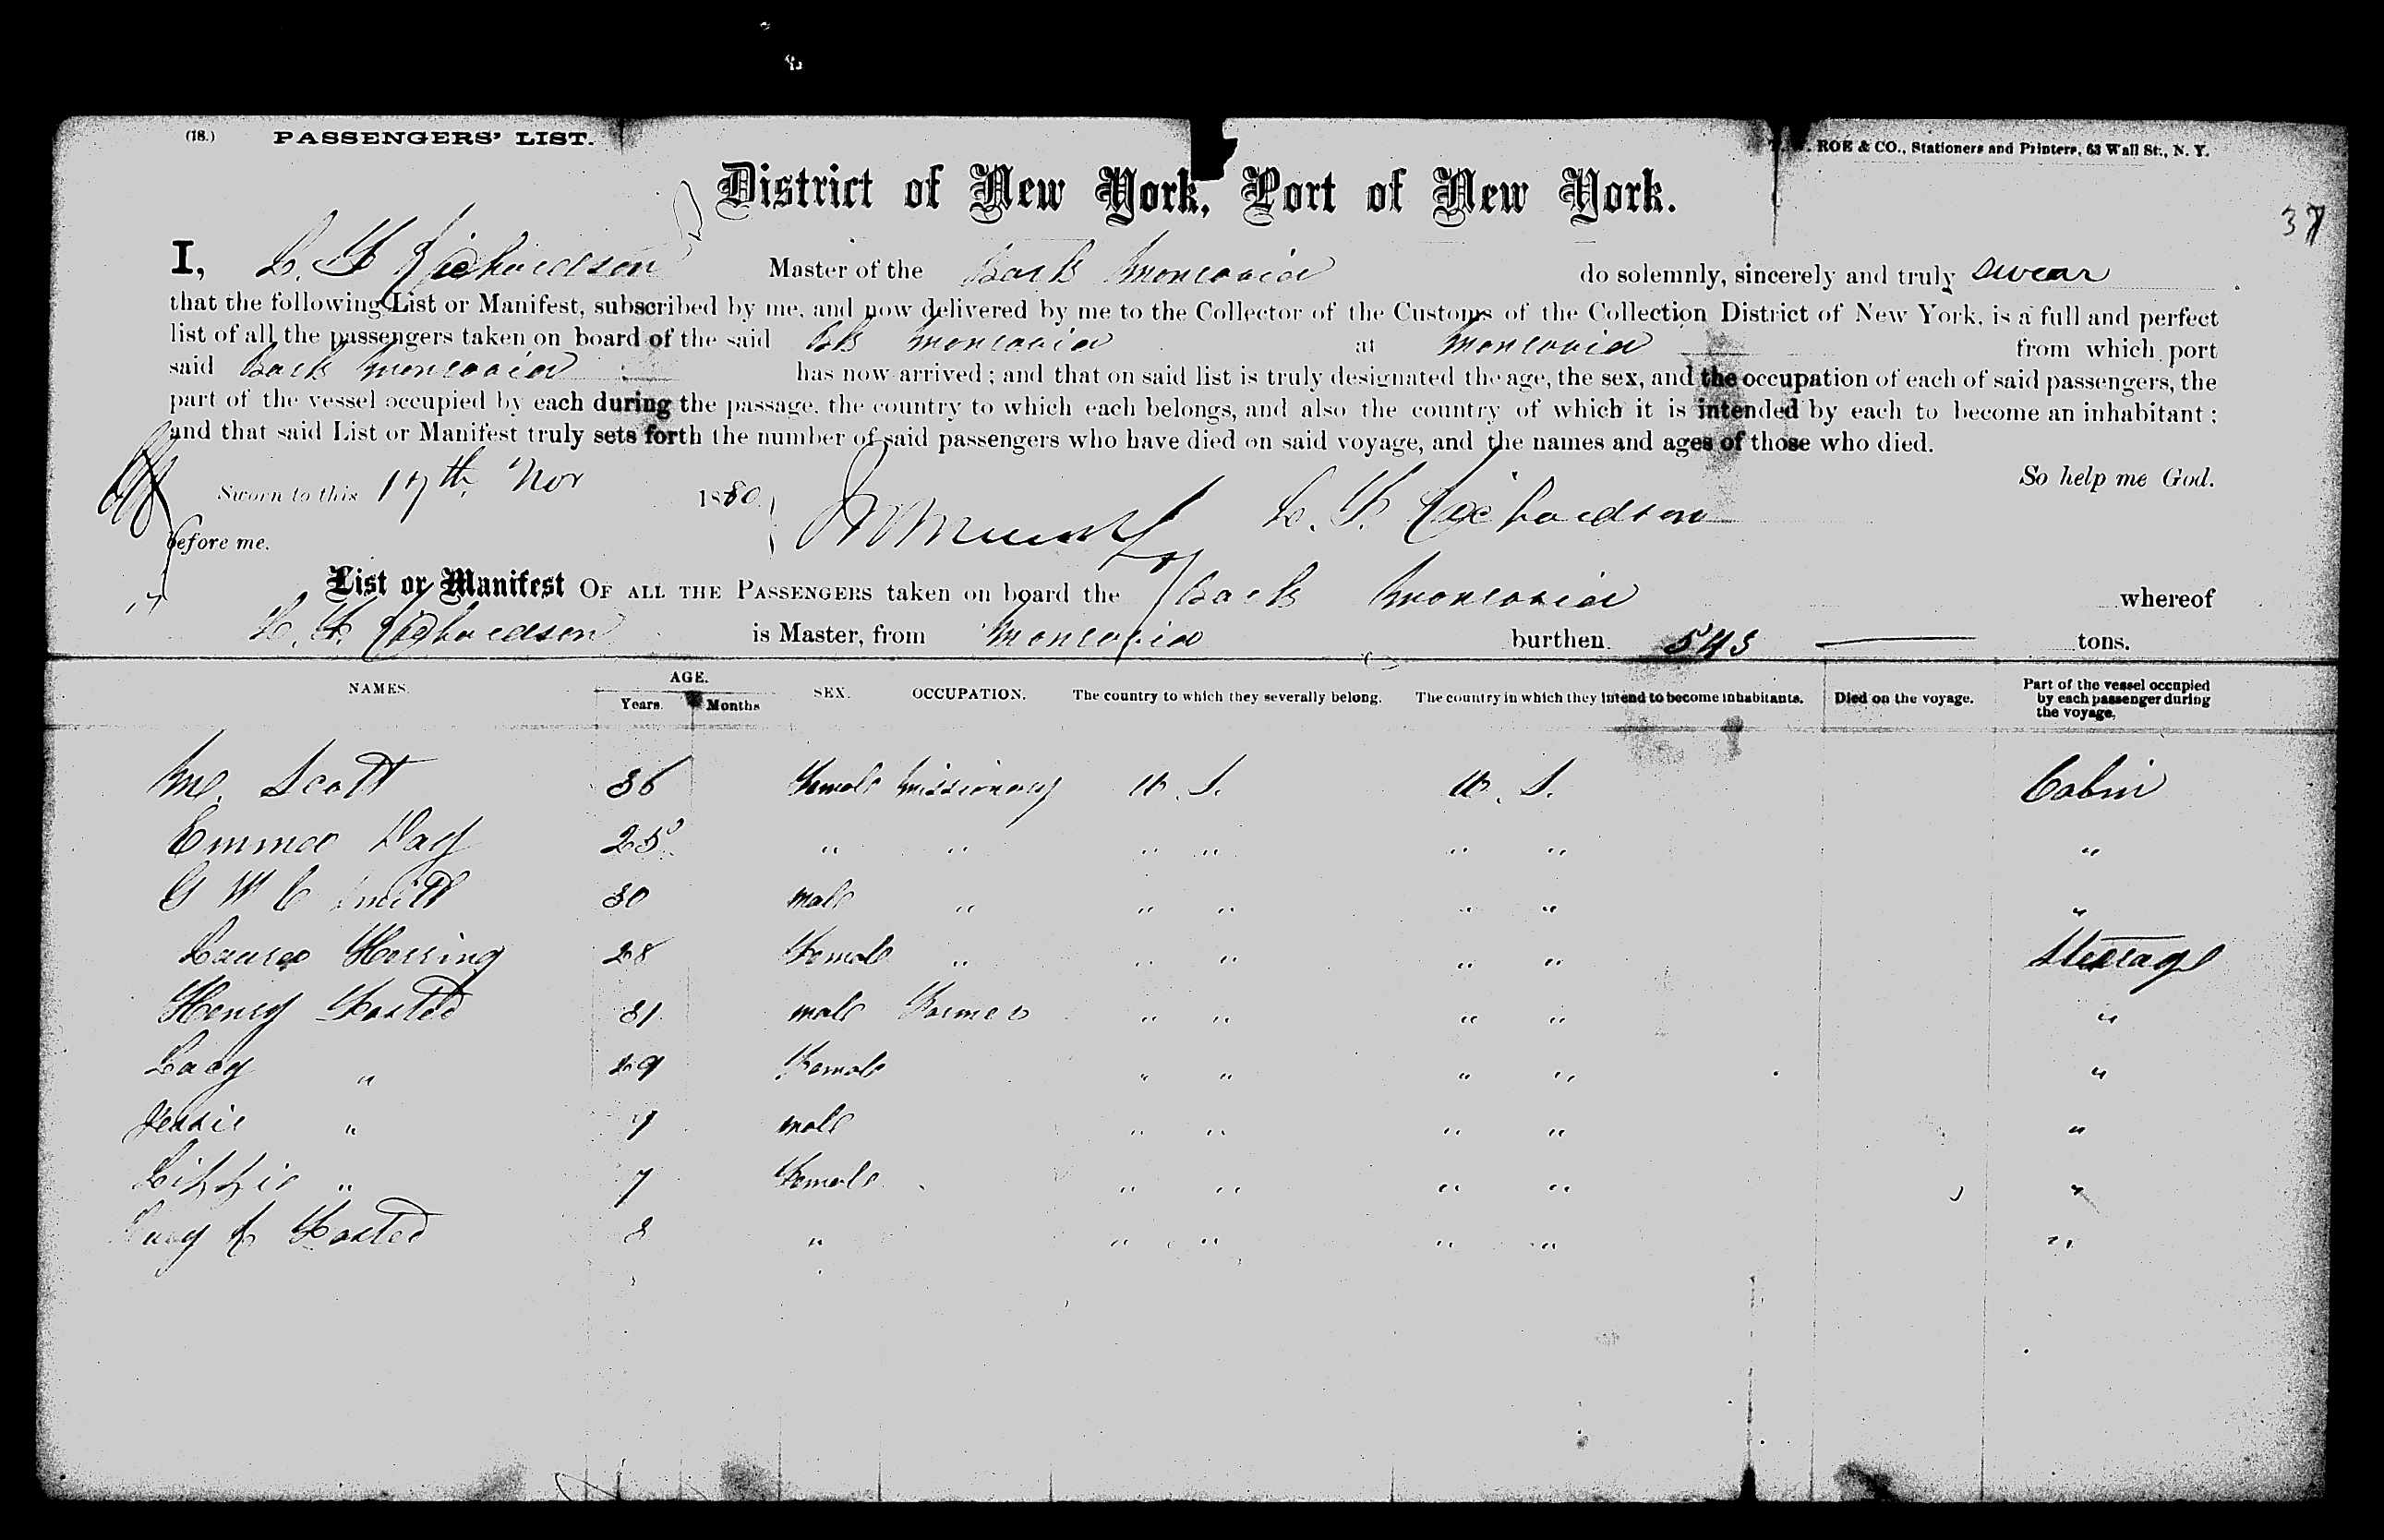 (18.) PASSENGERS' LIST.
ROE & CO., Stationers and Printers, 63 Wall St., N. Y.
District of New York, Port of New York.
37
I, L. F. Richardson Master of the Bark Monrovia do solemnly, sincerely and truly swear
that the following List or Manifest, subscribed by me, and now delivered by me to the Collector of the Customs of the Collection District of New York, is a full and perfect
list of all the passengers taken on board of the said Bk Monrovia at Monrovia from which port
said Bark Monrovia has now arrived; and that on said list is truly designated the age, the sex, and the occupation of each of said passengers, the
part of the vessel occupied by each during the passage, the country to which each belongs, and also the country of which it is intended by each to become an inhabitant;
and that said List or Manifest truly sets forth the number of said passengers who have died on said voyage, and the names and ages of those who died.
So help me God.
Sworn to this 17th Nov 1880 L. F. Richardson
before me.
List or Manifest OF ALL THE PASSENGERS taken on board the Bark Monrovia whereof
L. F. Richardson is Master, from Monrovia burthen 543 tons.
NAMES. AGE. Years. Months SEX. OCCUPATION. The country to which they severally belong. The country in which they intend to become inhabitants. Died on the voyage. Part of the vessel occupied by each passenger during the voyage.
Scott 36 Female Missionary U. S. U. S. Cabin
Emma Day 25 " " " " " " "
G W C Smith 30 male " " " " " "
Laura Herring 28 Female " " " " " Steerage
Henry 31 male Farmer " " " " "
Lucy " 29 Female " " " " "
Jessie " 7 male " " " " "
Lizzie " 7 Female " " " " "
8 " " " " " "